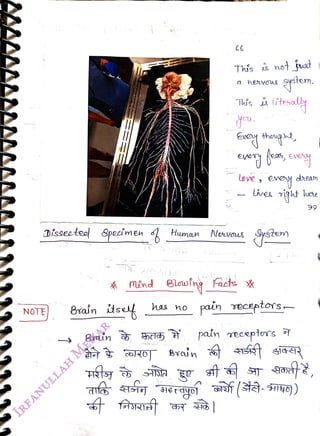 “
This is not just
a nervous system.
This is literally
you.
Every thought,
every fear, every
love, every dream
— lives right here
”
Dissected Specimen of Human Nervous System
Mind Blowing Facts
NOTE
Brain itself has no pain receptors.
→ Brain के ऊतक में pain receptors न
होने के कारण Brain की सर्जरी अक्सर
मरीज के जागते हुए भी की जा सकती है,
ताकि सर्जन महत्वपूर्ण कार्यों (जैसे-भाषण)
की निगरानी कर सके।
IRFANULLAH